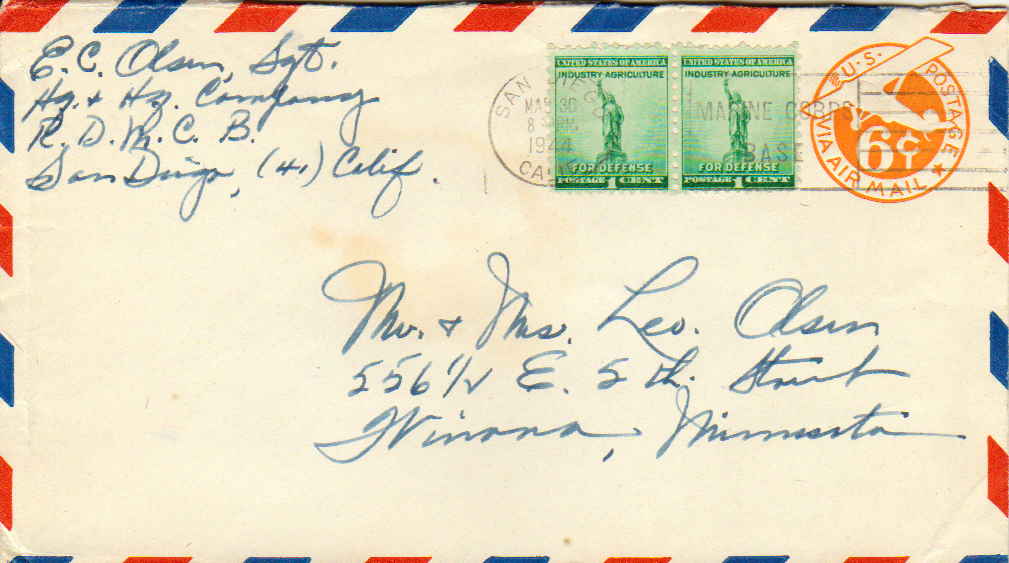 E. C. Olsen, Sgt.
Hq. & Hq. Company
R. D. M. C. B.
San Diego, (41) Calif.
UNITED STATES OF AMERICA
INDUSTRY AGRICULTURE
FOR DEFENSE
POSTAGE 1 CENT
UNITED STATES OF AMERICA
INDUSTRY AGRICULTURE
FOR DEFENSE
POSTAGE 1 CENT
SAN DIEGO
30
8
1944
MARINE CORPS
BASE
U.S. POSTAGE
6¢
VIA AIR MAIL
Mr. & Mrs. Leo. Olsen
556 1/2 E. 5 th. Street
Winona, Minnesota